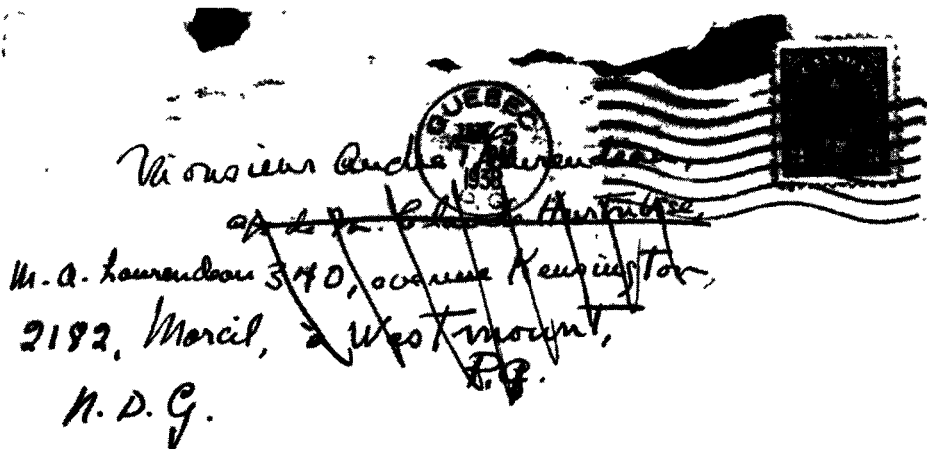 QUEBEC
1938
P. Q.
Monsieur André Laurendeau,
a/s de M. Hurtubise,
M. A. Laurendeau 340, avenue Kensington,
2182, Marcil, à Westmount,
P.Q.
N. D. G.